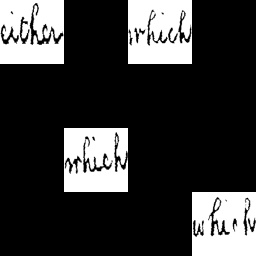 either which
which
which